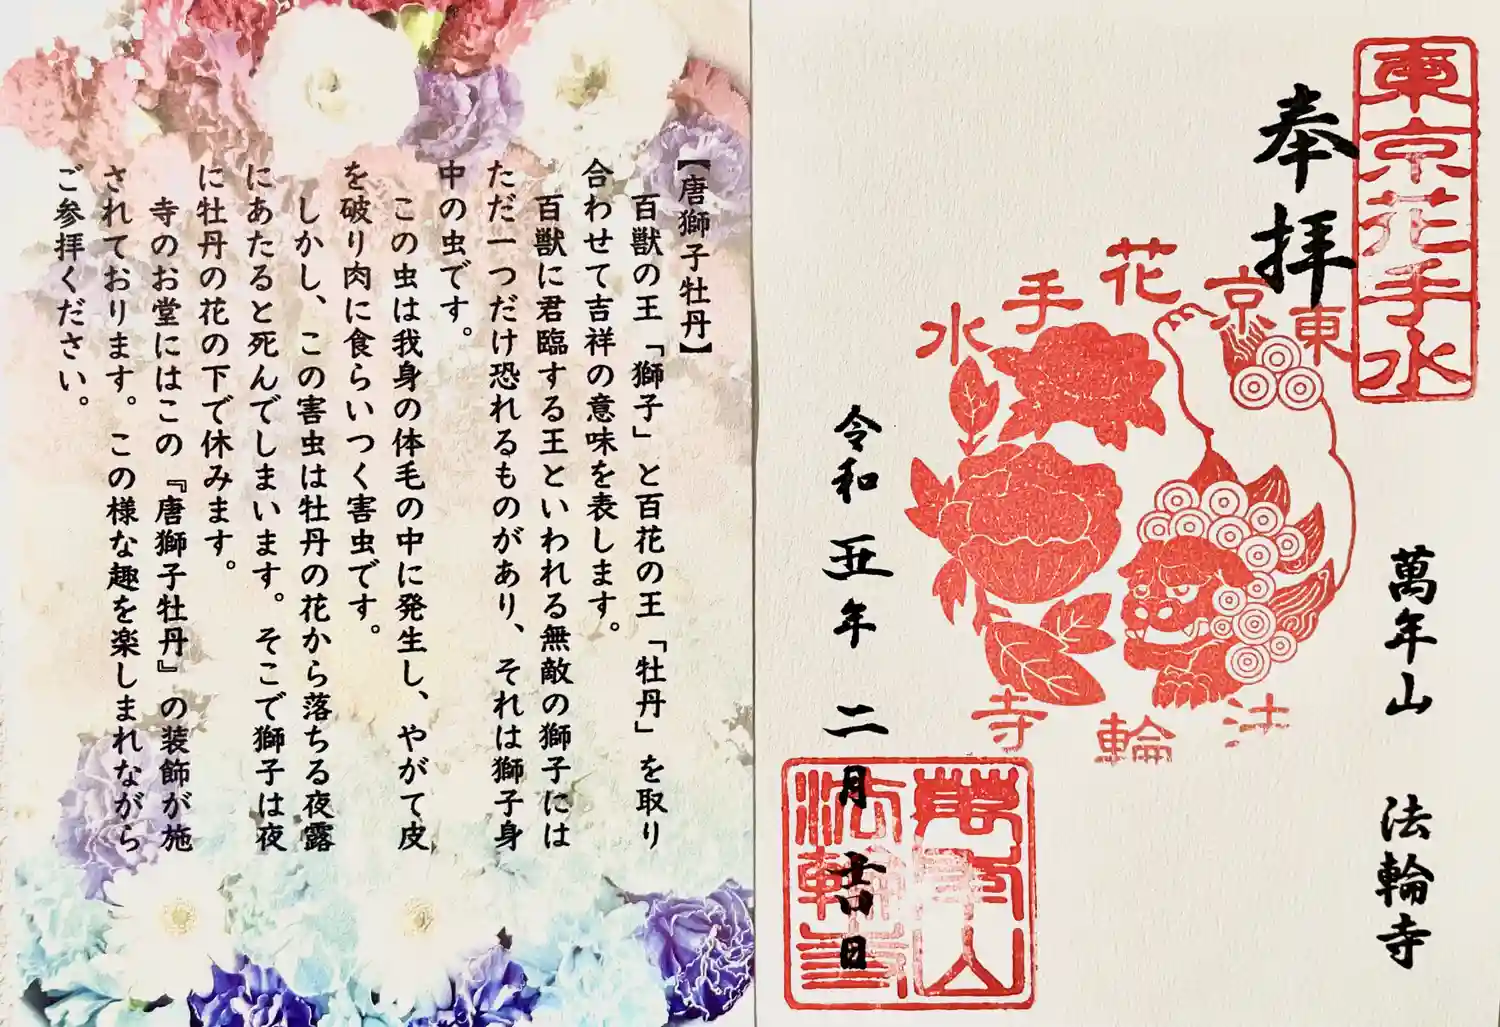 東京花手水
奉拝
萬年山 法輪寺
東京花手水
法輪寺
令和五年 二月 吉日
萬年山
法輪寺
【唐獅子牡丹】
百獣の王「獅子」と百花の王「牡丹」を取り
合わせて吉祥の意味を表します。
百獣に君臨する王といわれる無敵の獅子には
ただ一つだけ恐れるものがあり、それは獅子身
中の虫です。
この虫は我身の体毛の中に発生し、やがて皮
を破り肉に食らいつく害虫です。
しかし、この害虫は牡丹の花から落ちる夜露
にあたると死んでしまいます。そこで獅子は夜
に牡丹の花の下で休みます。
寺のお堂にはこの『唐獅子牡丹』の装飾が施
されております。この様な趣を楽しまれながら
ご参拝ください。